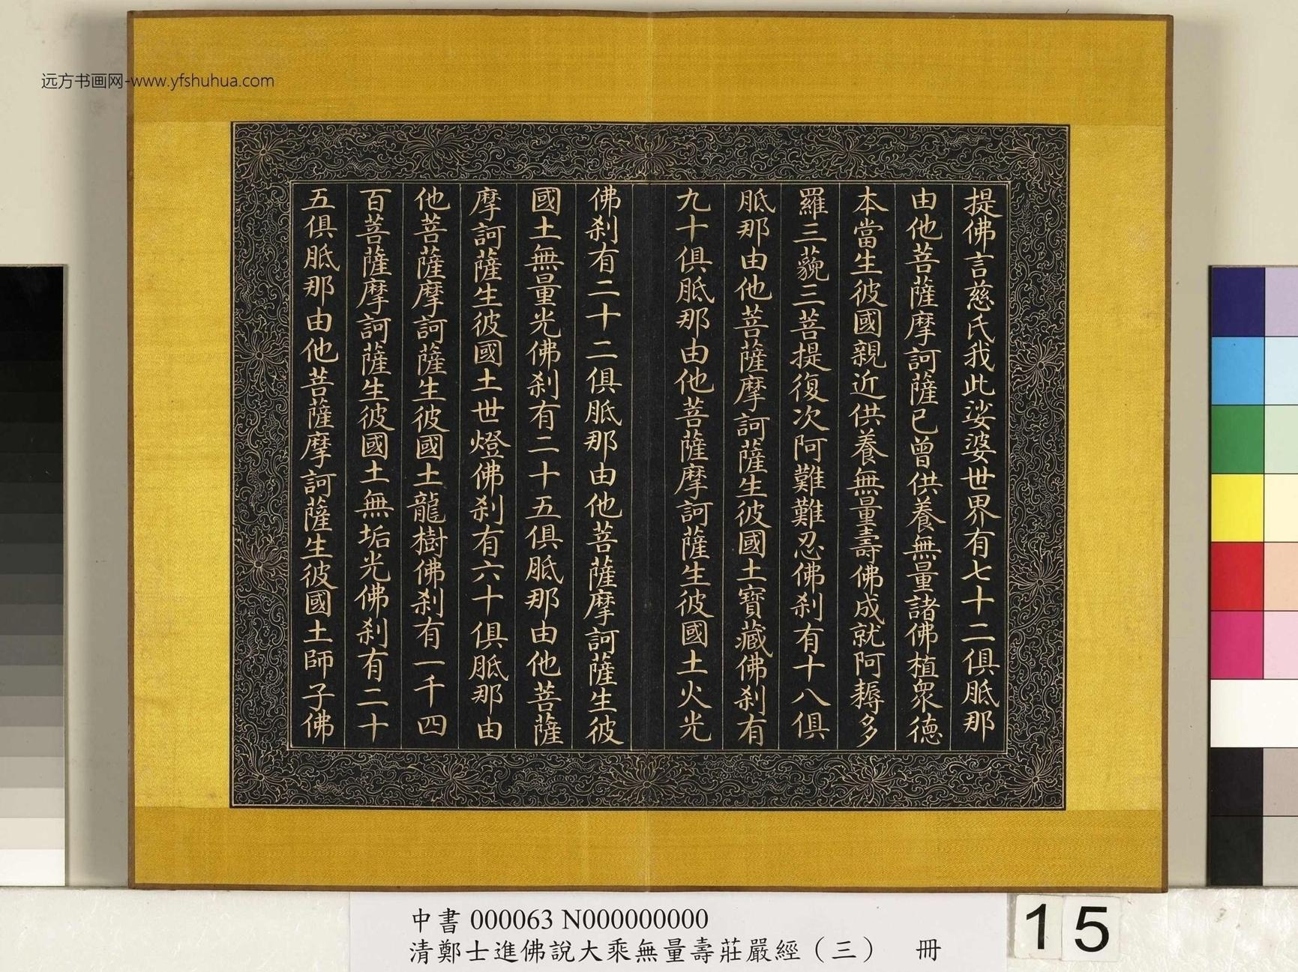 远方书画网-www.yfshuhua.com
提佛言慈氏我此娑婆世界有七十二俱胝那
由他菩薩摩訶薩已曾供養無量諸佛植眾德
本當生彼國親近供養無量壽佛成就阿耨多
羅三藐三菩提復次阿難難忍佛刹有十八俱
胝那由他菩薩摩訶薩生彼國土寶藏佛刹有
九十俱胝那由他菩薩摩訶薩生彼國土火光
佛刹有二十二俱胝那由他菩薩摩訶薩生彼
國土無量光佛刹有二十五俱胝那由他菩薩
摩訶薩生彼國土世燈佛刹有六十俱胝那由
他菩薩摩訶薩生彼國土龍樹佛刹有一千四
百菩薩摩訶薩生彼國土無垢光佛刹有二十
五俱胝那由他菩薩摩訶薩生彼國土師子佛
中書 000063 N000000000
清鄭士進佛說大乘無量壽莊嚴經（三） 冊
15